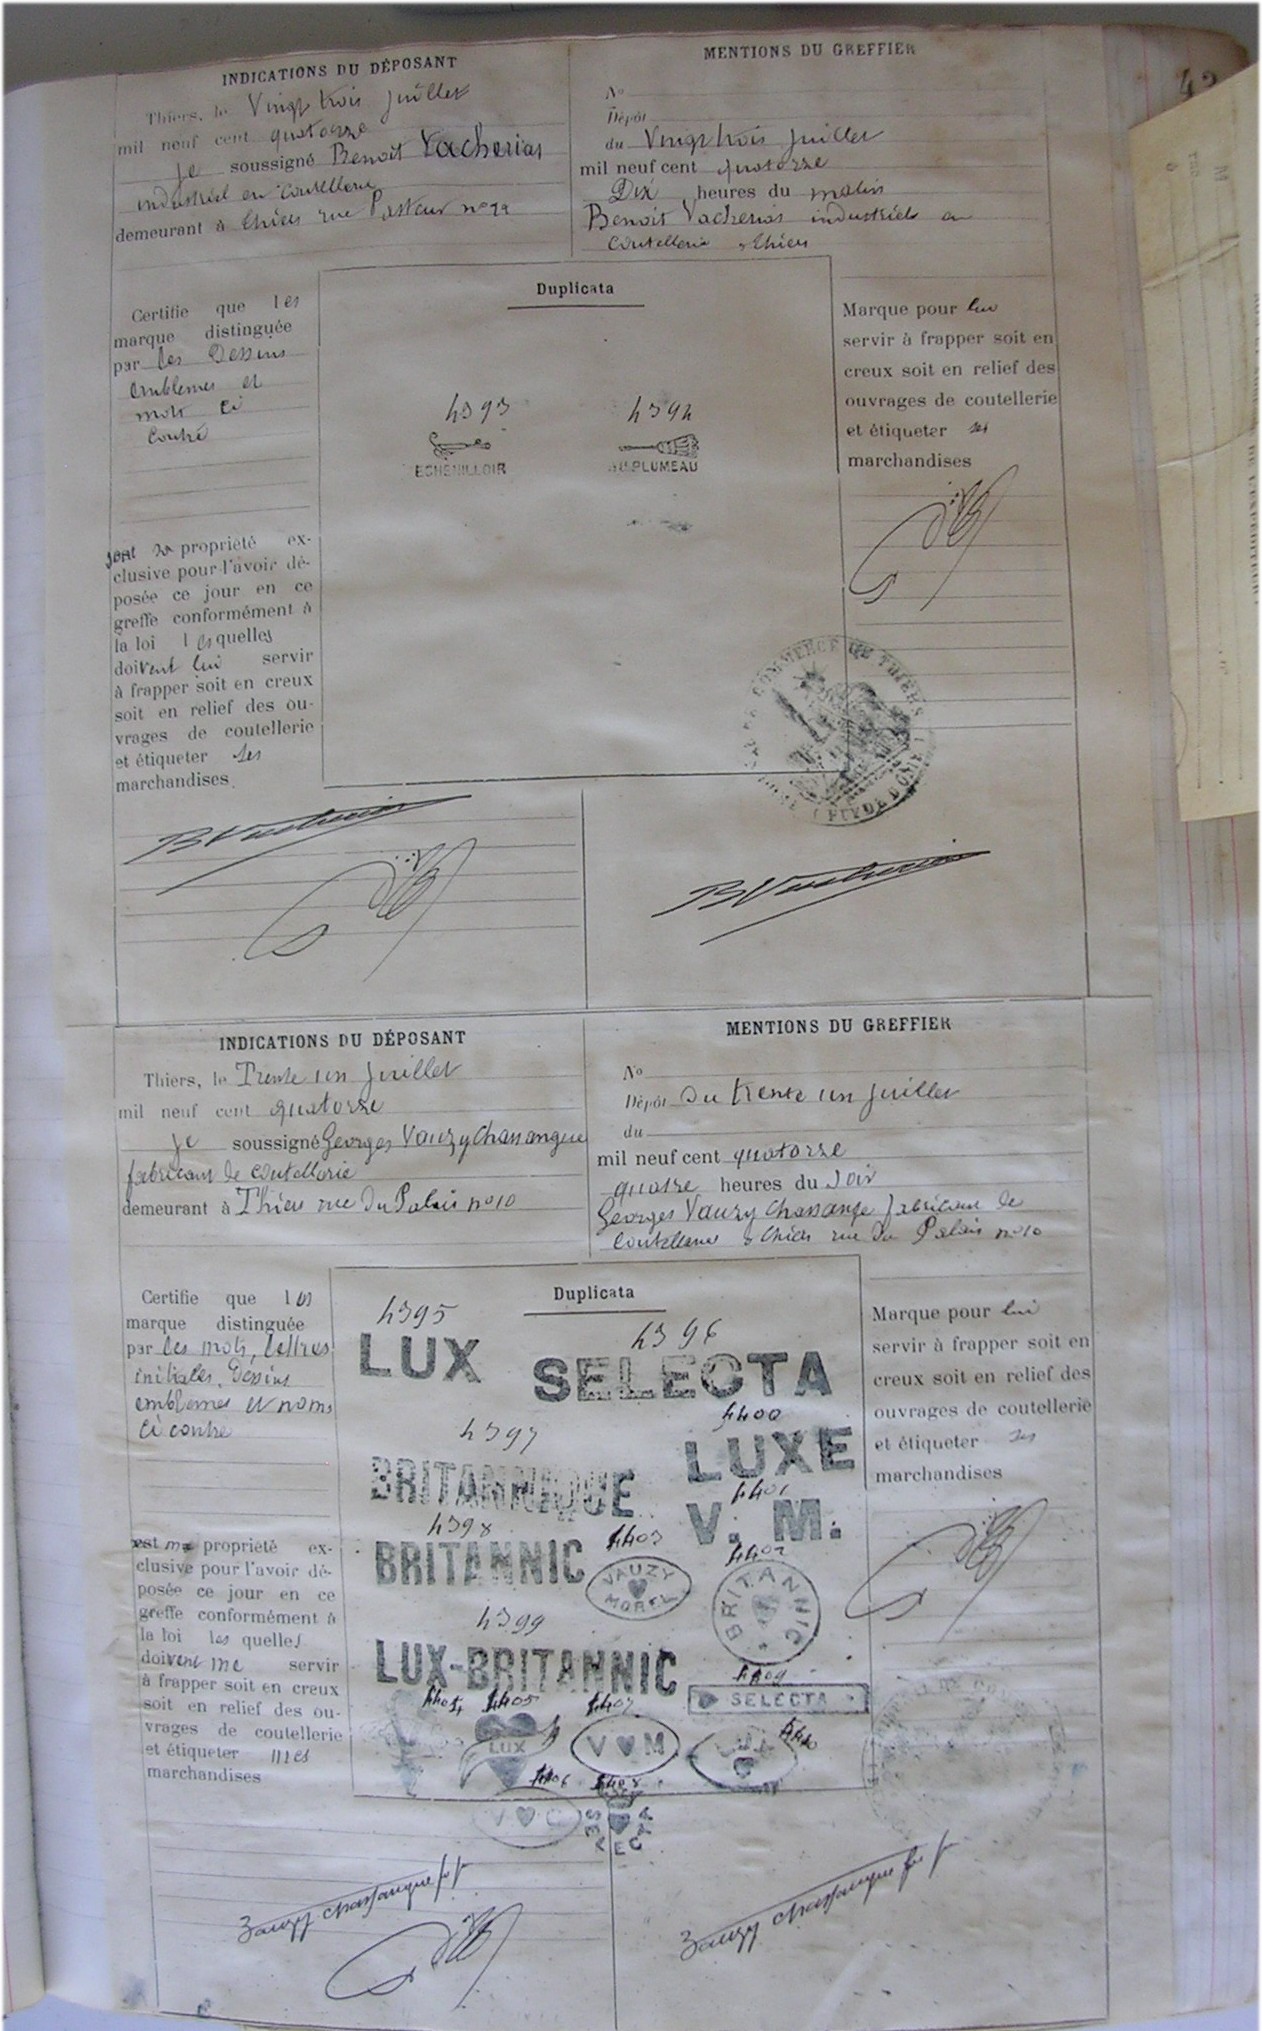 INDICATIONS DU DÉPOSANT
Thiers, le Vingt trois juillet
mil neuf cent quatorze
je soussigné Benoit Vacherias
industriel en coutellerie
demeurant à Thiers rue Pasteur n°
MENTIONS DU GREFFIER
N°
Dépôt
du Vingt trois juillet
mil neuf cent quatorze
Dix heures du matin
Benoit Vacherias industriel en
coutellerie a Thiers
Certifie que les
marque distinguée
par les Dessins
emblemes et
mots ci
contre
sont sa propriété ex-
clusive pour l'avoir dé-
posée ce jour en ce
greffe conformément à
la loi lesquelles
doivent lui servir
à frapper soit en creux
soit en relief des ou-
vrages de coutellerie
et étiqueter ses
marchandises.
Duplicata
4393
4394
ECHENILLOIR
AU PLUMEAU
Marque pour lui
servir à frapper soit en
creux soit en relief des
ouvrages de coutellerie
et étiqueter ses
marchandises
COMMERCE DE THIERS
PUY DE DOME
B Vacherias
B Vacherias
INDICATIONS DU DÉPOSANT
Thiers, le Trente un juillet
mil neuf cent quatorze
je soussigné Georges Vauzy Chassangue
fabricant de coutellerie
demeurant à Thiers rue Du Palais n° 10
MENTIONS DU GREFFIER
N°
Dépôt Du trente un juillet
du
mil neuf cent quatorze
quatre heures du soir
Georges Vauzy Chassangue fabricant de
coutellerie a Thiers rue Du Palais n° 10
Certifie que les
marque distinguée
par les mots, lettres
initiales, Dessins
emblemes et noms
ci contre
est ma propriété ex-
clusive pour l'avoir dé-
posée ce jour en ce
greffe conformément à
la loi lesquelles
doivent me servir
à frapper soit en creux
soit en relief des ou-
vrages de coutellerie
et étiqueter mes
marchandises
Duplicata
4395
LUX
4396
SELECTA
4397
BRITANNIQUE
4400
LUXE
4401
V. M.
4398
BRITANNIC
4403
VAUZY
MOREL
4402
BRITANNIC
4399
LUX-BRITANNIC
4409
SELECTA
4404
4405
LUX
4407
V M
4410
LUX
4406
V C
4408
SELECTA
Marque pour lui
servir à frapper soit en
creux soit en relief des
ouvrages de coutellerie
et étiqueter ses
marchandises
Vauzy Chassangue
Vauzy Chassangue